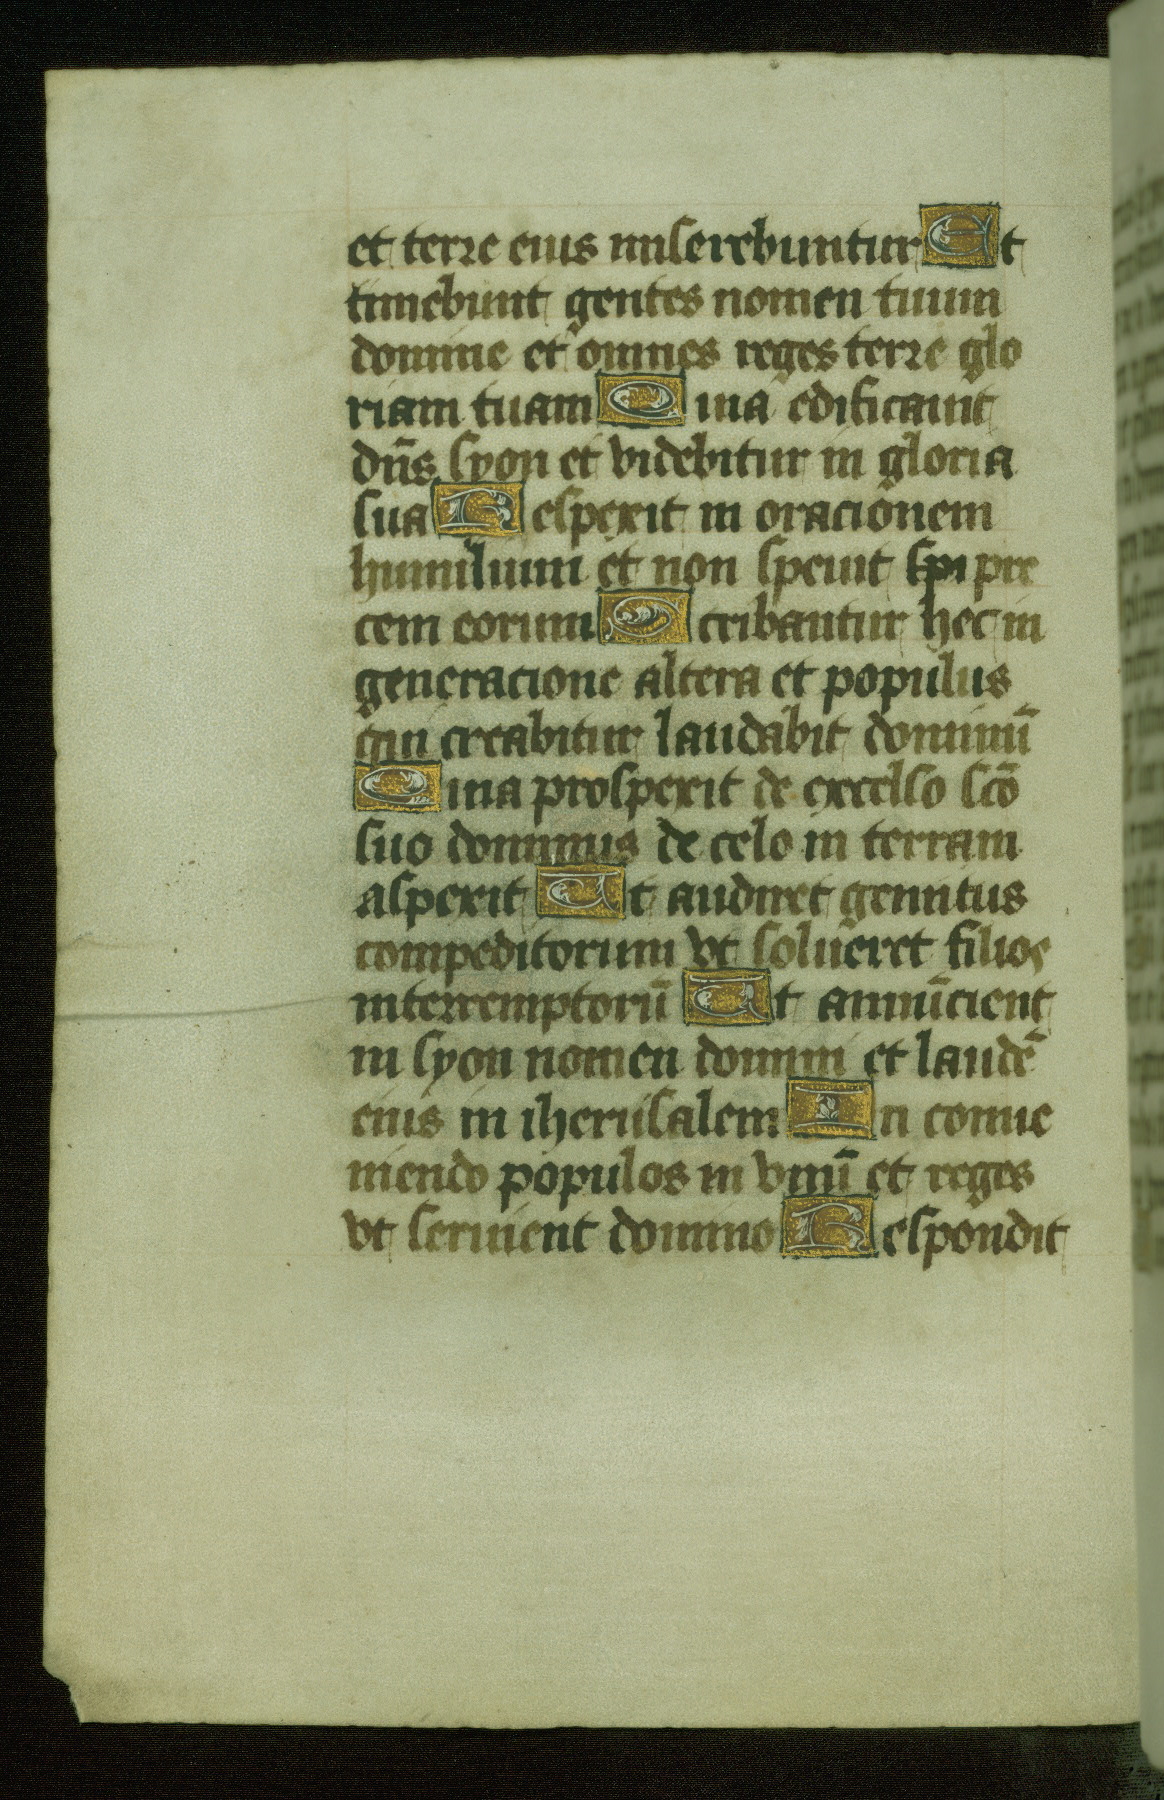 et terre eius miserebuntur Et
timebunt gentes nomen tuum
domine et omnes reges terre glo
riam tuam Quia edificauit
dn̄s syon et videbitur in gloria
sua Respexit in oracionem
humilium et non spreuit pre
cem eorum Scribantur hec in
generacione altera et populus
qui creabitur laudabit dominū
Quia prospexit de excelso sc̄o
suo dominus de celo in terram
aspexit Ut audiret gemitus
compeditorum vt solueret filios
interremptorū Ut annūcient
in syon nomen domini et laudē
eius in iherusalem In conue
niendo populos in vnū et reges
vt seruient domino Respondit